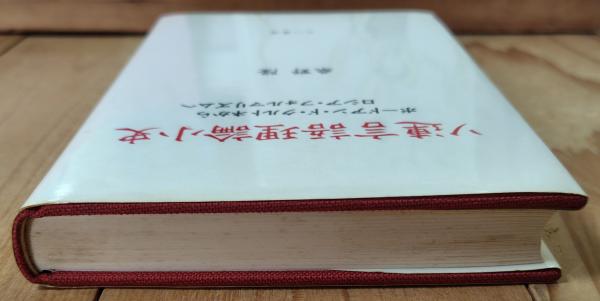 ソ連言語理論小史
ボードアン・ド・クルトネから
ロシア・フォルマリズムへ
桑野 隆